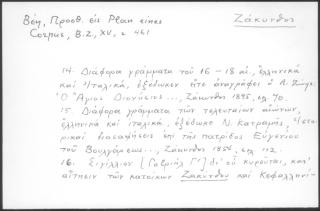 Βέη, Προσθ. εἰς Plan eines
Ζάκυνθος
Corpus, B.Z., XV, σ. 461
14. Διάφορα γράμματα τοῦ 16-18 αἰ. ἑλληνικά
καί ἰταλικά, ἐξέδωκεν εἴτε ἀναγράφει ὁ Λ. Ζώης,
Ὁ Ἅγιος Διονύσιος..., Ζάκυνθος 1895, σ. 70.
15. Διάφορα γράμματα τῶν τελευταίων αἰώνων,
ἑλληνικά καί ἰταλικά, ἐξέδωκε Ν. Κατραμῆς, Ἱστο-
ρικαί διασαφήσεις ἐπί τῆς πατρίδος Εὐγενίου
τοῦ Βουλγάρεως..., Ζάκυνθος 1854, σ. 112.
16. Σιγίλλιον [Γαβριήλ Γ'] δι' οὗ κυροῦται, κατ'
αἴτησιν τῶν κατοίκων Ζακύνθου καί Κεφαλληνί-